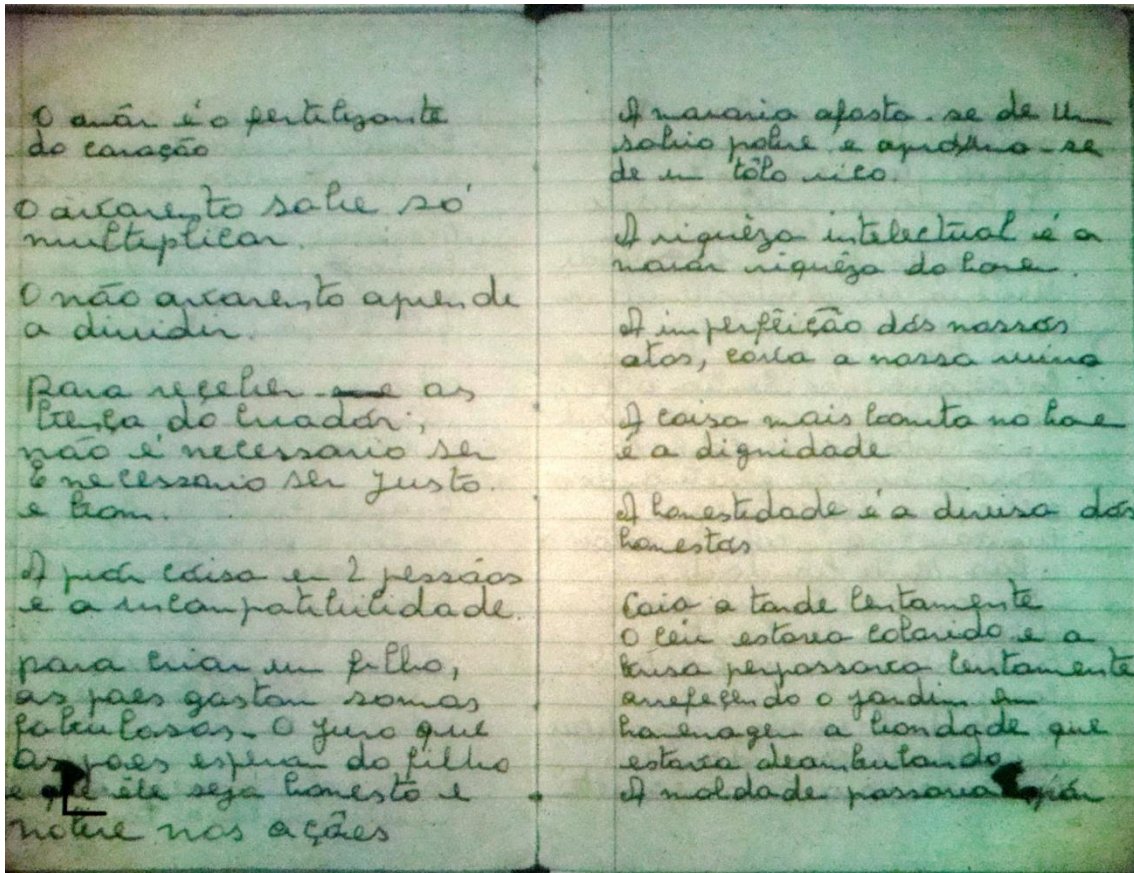 O amôr é o fertilizante
do coração
O avarento sabe só
multiplicar.
O não avarento aprende
a dividir.
para reçeber as
benção do Criadôr;
não é necessario ser
E necessario ser Justo
e bom.
A piór côisa em 2 pessôas
e a incompatibilidade.
para criar um filho,
os paes gastam somas
fabulosas. O Juro que
os paes esperam do filho
e que êle seja honesto e
nobre nas ações
A maioria afasta-se de um
sabio pobre e aproxima-se
de um tôlo rico.
A riquêza intelectual é a
maiór riquêza do homem.
A imperfêição dós nossós
atos, cava a nossa ruina
A coisa mais bonita no home
é a dignidade
A honestidade é a divisa dós
honestós
Caia a tarde lentamente
O céu estava colorido e a
brisa perpassava lentamente
arrefeçendo o jardim em
homenagem a bondade que
estava deambulando
A maldade passava pór